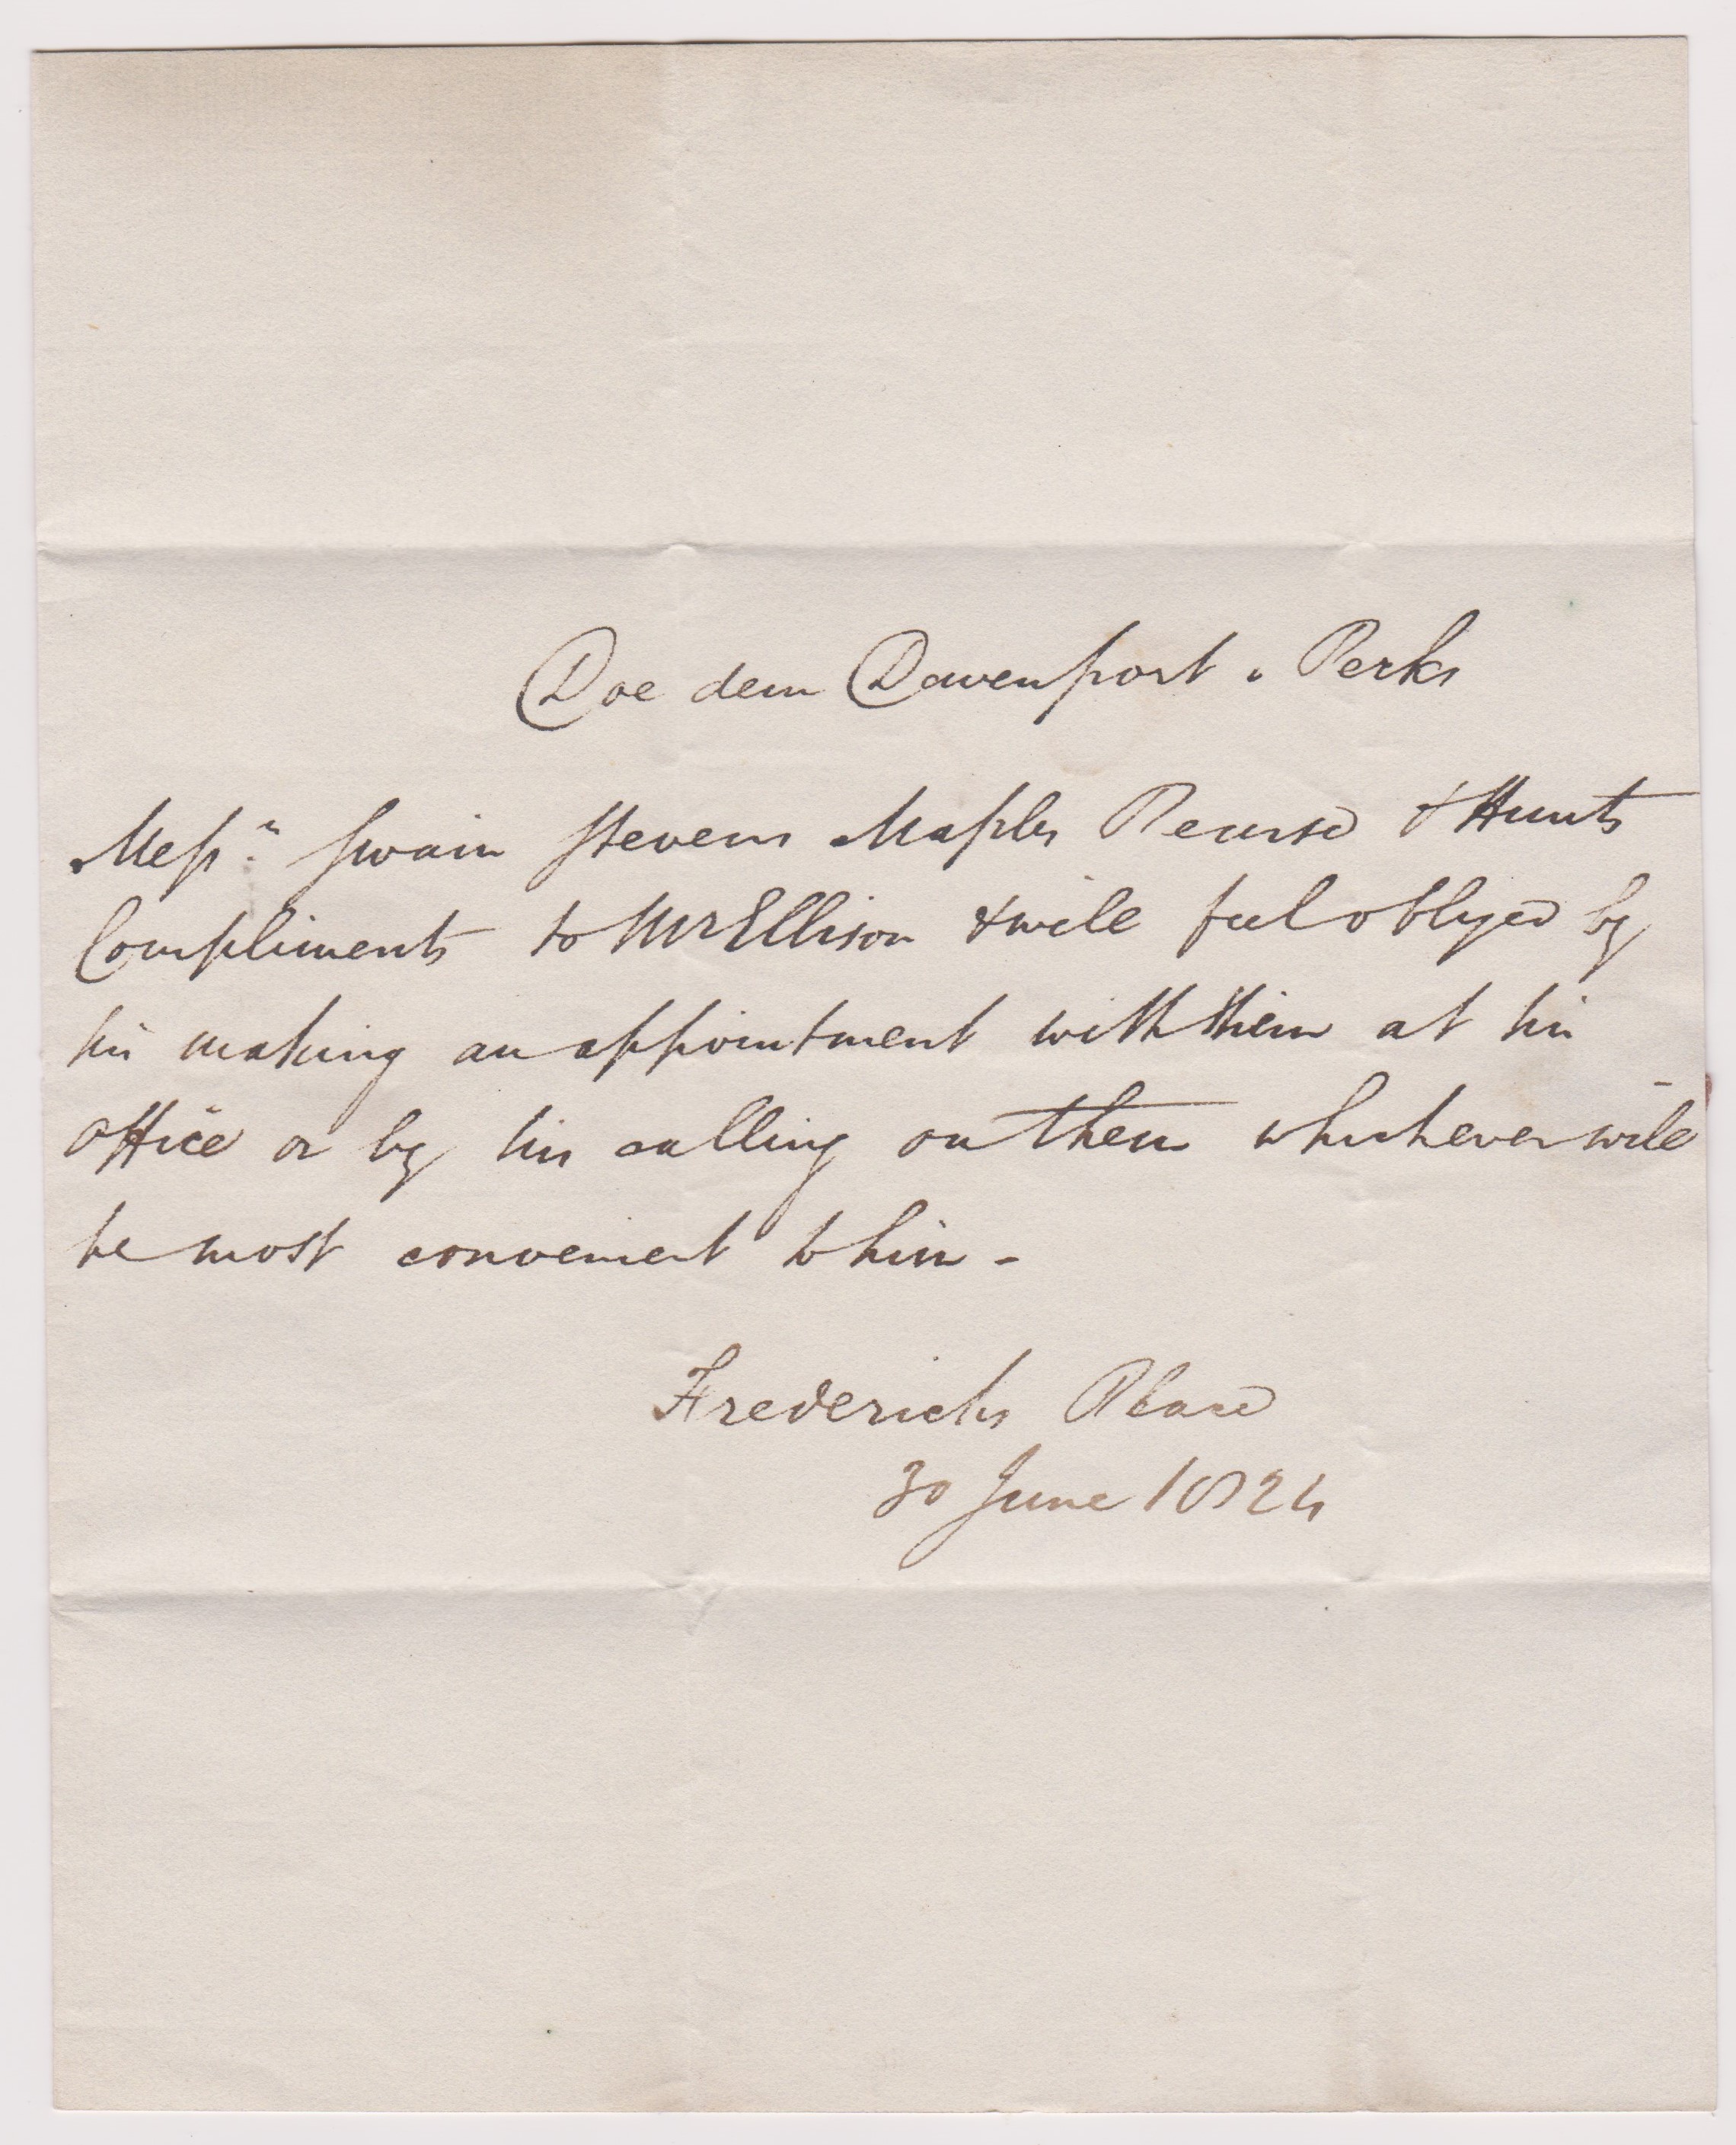 Doe dem Davenport v Perks
Messrs. Swain Stevens Maples Pearse & Hunts
Compliments to Mr Ellison & will feel obliged by
his making an appointment with them at his
office or by his calling on them whichever will
be most convenient to him -
Fredericks Place
30 June 1824